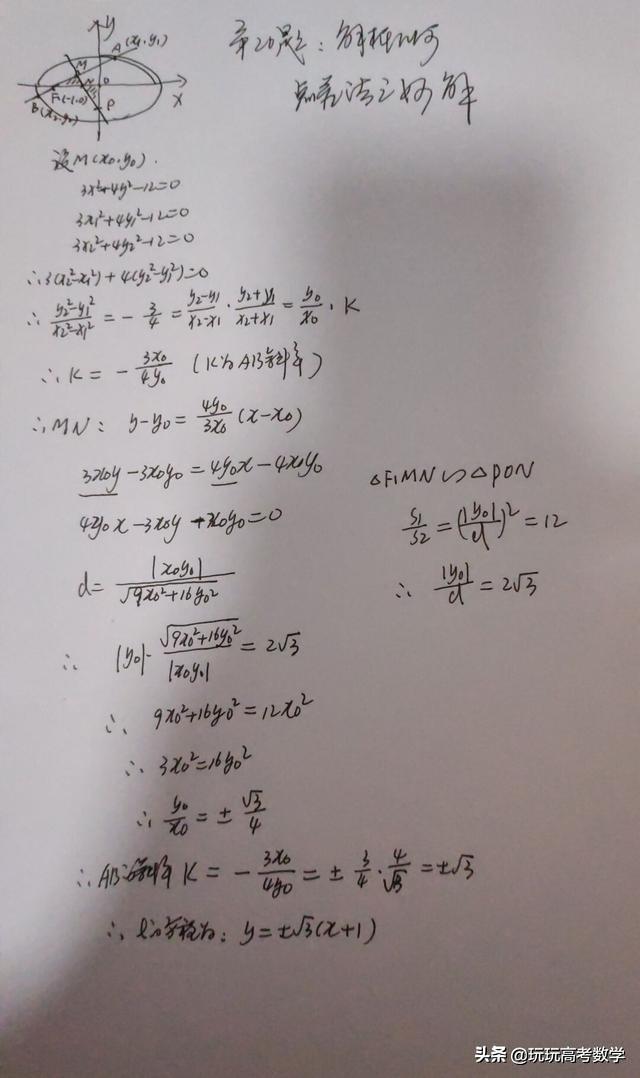 第20题：解析几何
点差法之妙解
y
A(x₁,y₁)
M
N
O
F₁(-1,0)
P
B(x₂,y₂)
x
设M(x₀,y₀).
3x²+4y²-12=0
3x₁²+4y₁²-12=0
3x₂²+4y₂²-12=0
∴3(x₂²-x₁²)+4(y₂²-y₁²)=0
∴ (y₂²-y₁²)/(x₂²-x₁²) = -3/4 = (y₂-y₁)/(x₂-x₁)·(y₂+y₁)/(x₂+x₁) = y₀/x₀·K
∴K = -3x₀/4y₀ (K为AB斜率)
∴MN: y-y₀ = 4y₀/3x₀ (x-x₀)
3x₀y-3x₀y₀=4y₀x-4x₀y₀
4y₀x-3x₀y-x₀y₀=0
d = |x₀y₀|/√(9x₀²+16y₀²)
△F₁MN∽△PON
S₁/S₂ = (|y₀|/d)² = 12
∴ |y₀|/d = 2√3
∴ |y₀|·√(9x₀²+16y₀²)/|x₀y₀| = 2√3
∴ 9x₀²+16y₀²=12x₀²
∴ 3x₀²=16y₀²
∴ y₀/x₀ = ±√3/4
∴AB斜率K = -3x₀/4y₀ = ±3/4·4/√3 = ±√3
∴ l方程为: y=±√3(x+1)
头条 @玩玩高考数学